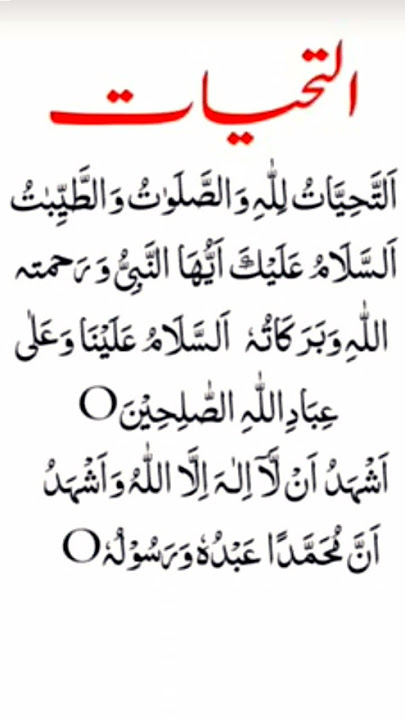 التحيات
اَلتَّحِيَّاتُ لِلّٰهِ وَالصَّلَوٰتُ وَالطَّيِّبٰتُ
اَلسَّلَامُ عَلَيْكَ اَيُّهَا النَّبِيُّ وَرَحمته
اللّٰهِ وَبَرَكَاتُهٗ اَلسَّلَامُ عَلَيْنَا وَعَلٰى
عِبَادِ اللّٰهِ الصّٰلِحِيْنَ○
اَشْهَدُ اَنْ لَّآ اِلٰهَ اِلَّا اللّٰهُ وَاَشْهَدُ
اَنَّ مُحَمَّدًا عَبْدُهٗ وَرَسُوْلُهٗ○